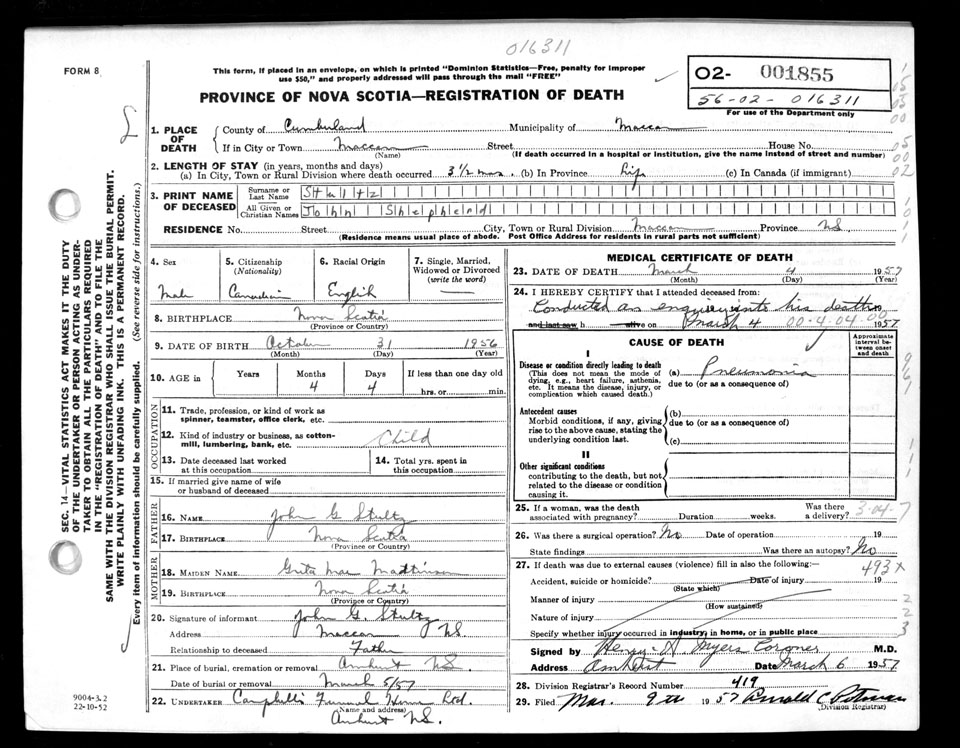 016311
FORM 8
This form, if placed in an envelope, on which is printed "Dominion Statistics—Free, penalty for improper
use $50," and properly addressed will pass through the mail "FREE"
02- 001855
56-02-016311
For use of the Department only
PROVINCE OF NOVA SCOTIA—REGISTRATION OF DEATH
1. PLACE OF DEATH
County of Cumberland Municipality of Maccan
If in City or Town Maccan Street House No.
(Name) (If death occurred in a hospital or institution, give the name instead of street and number)
2. LENGTH OF STAY (in years, months and days)
(a) In City, Town or Rural Division where death occurred 3 1/2 mos. (b) In Province Life (c) In Canada (if immigrant)
3. PRINT NAME OF DECEASED
Surname or Last Name Stultz
All Given or Christian Names John Shepherd
RESIDENCE No. Street City, Town or Rural Division Maccan Province NS.
(Residence means usual place of abode. Post Office Address for residents in rural parts not sufficient)
4. Sex
Male
5. Citizenship
(Nationality)
Canadian
6. Racial Origin
English
7. Single, Married,
Widowed or Divorced
(write the word)
—
8. BIRTHPLACE Nova Scotia
(Province or Country)
9. DATE OF BIRTH October 31 1956
(Month) (Day) (Year)
10. AGE in
Years Months Days If less than one day old
4 4 hrs. or min.
OCCUPATION
11. Trade, profession, or kind of work as
spinner, teamster, office clerk, etc.
12. Kind of industry or business, as cotton-
mill, lumbering, bank, etc. Child
13. Date deceased last worked
at this occupation
14. Total yrs. spent in
this occupation
15. If married give name of wife
or husband of deceased
FATHER
16. NAME John G Stultz
17. BIRTHPLACE Nova Scotia
(Province or Country)
MOTHER
18. MAIDEN NAME Greta Mae Mattinson
19. BIRTHPLACE Nova Scotia
(Province or Country)
20. Signature of informant John G. Stultz
Address Maccan NS.
Relationship to deceased Father
21. Place of burial, cremation or removal Amherst NS.
Date of burial or removal March 5/57
22. UNDERTAKER Campbell's Funeral Home Ltd.
(Name and address)
Amherst NS.
MEDICAL CERTIFICATE OF DEATH
23. DATE OF DEATH March 4 1957
(Month) (Day) (Year)
24. I HEREBY CERTIFY that I attended deceased from:
Conducted an enquiry into his death 19
and last saw h alive on March 4 00-4.04-00 1957
CAUSE OF DEATH
Approximate
interval be-
tween onset
and death
I
Disease or condition directly leading to death
(This does not mean the mode of
dying, e.g., heart failure, asthenia,
etc. It means the disease, injury, or
complication which caused death.)
(a) Pneumonia
due to (or as a consequence of)
Antecedent causes
Morbid conditions, if any, giving
rise to the above cause, stating the
underlying condition last.
(b)
due to (or as a consequence of)
(c)
II
Other significant conditions
contributing to the death, but not
related to the disease or condition
causing it.
25. If a woman, was the death Was there
associated with pregnancy? Duration weeks. a delivery? 3-04-7
26. Was there a surgical operation? No Date of operation 19
State findings Was there an autopsy? No
27. If death was due to external causes (violence) fill in also the following:— 493x
Accident, suicide or homicide? Date of injury 19
(State which)
Manner of injury
(How sustained)
Nature of injury
Specify whether injury occurred in industry, in home, or in public place
Signed by Henry A. Myers Coroner M.D.
Address Amherst Date March 6 1957
28. Division Registrar's Record Number 419
29. Filed Mar. 9th 1957
(Division Registrar)
SEC. 14—VITAL STATISTICS ACT MAKES IT THE DUTY
OF THE UNDERTAKER OR PERSON ACTING AS UNDER-
TAKER TO OBTAIN ALL THE PARTICULARS REQUIRED
IN THE "REGISTRATION OF DEATH" AND TO FILE THE
SAME WITH THE DIVISION REGISTRAR WHO SHALL ISSUE THE BURIAL PERMIT.
WRITE PLAINLY WITH UNFADING INK. THIS IS A PERMANENT RECORD.
Every item of information should be carefully supplied. (See reverse side for instructions.)
9004-3.2
22-10-52